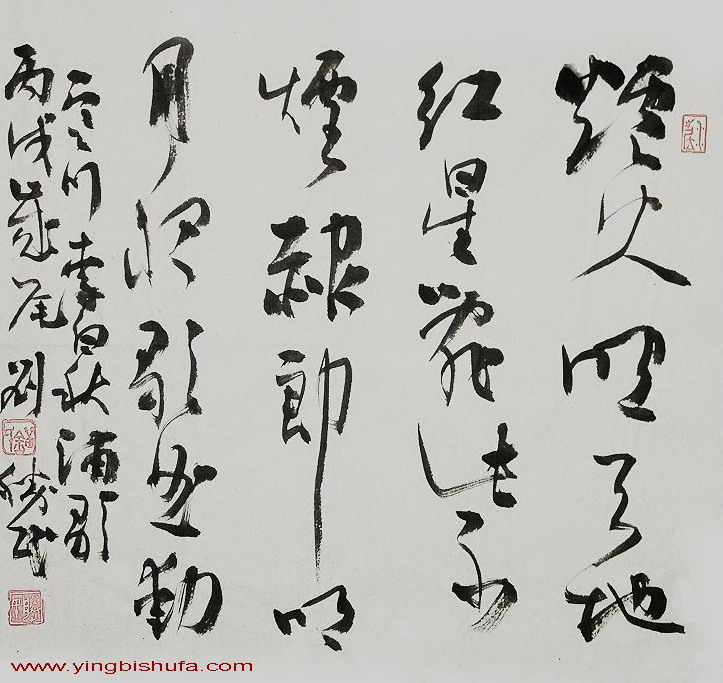 爐火照天地
红星亂紫
煙赧郎明
月夜歌曲動
寒川 李白秋浦歌
丙戌歲尾劉勝
www.yingbishufa.com